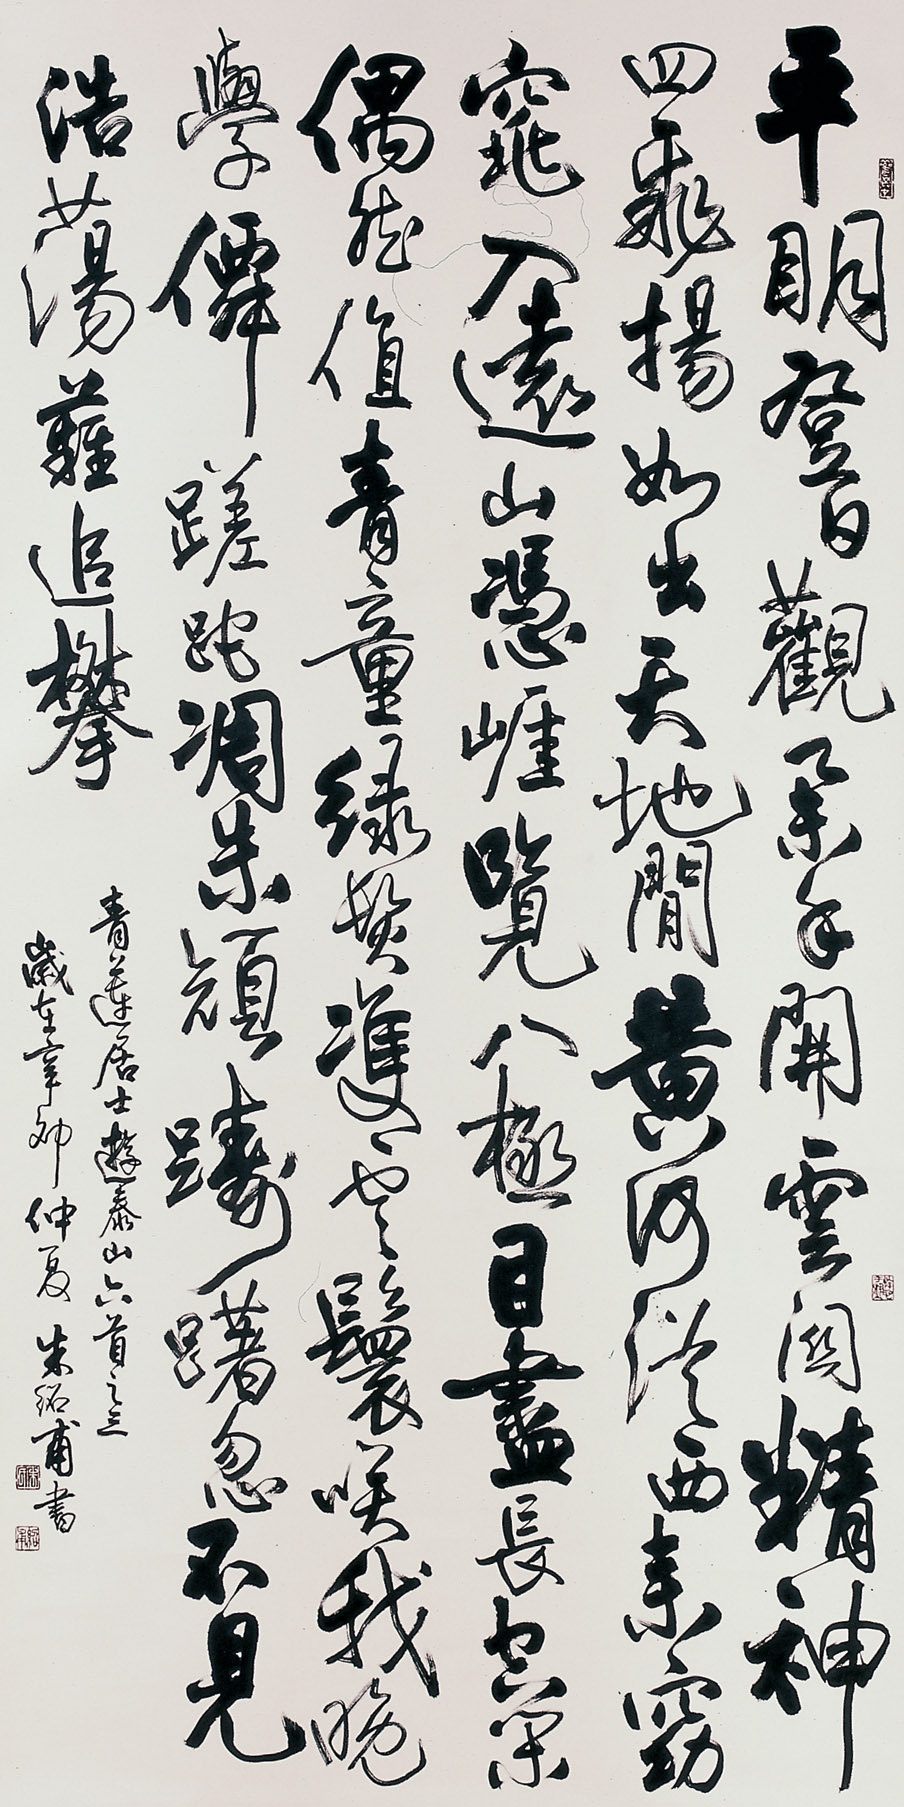 平明登日觀舉手開雲關精神
四飛揚如出天地間黃河從西來窈
窕入遠山憑崕覽八極目盡長空閑
偶然值青童綠髮雙雲鬟咲我晚
學僊蹉跎凋朱顏躊躇忽不見
浩蕩難追攀
青蓮居士遊泰山六首之三
歲在辛卯仲夏 朱紹甫書